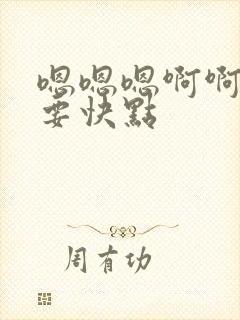 嗯嗯嗯啊啊
要快點
周有功